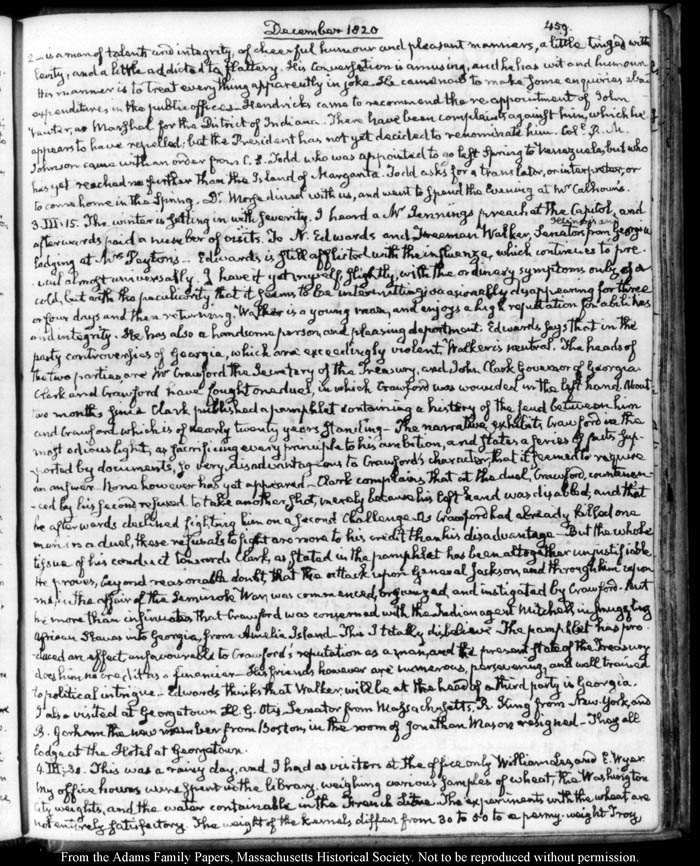 December 1820
459.
2 — is a man of talents and integrity, of cheerful humour and pleasant manners, a little tinged with
levity, and a little addicted to flattery. His conversation is amusing, and he has wit and humour
His manner is to treat every thing apparently in joke. He came now to make some enquiries about
expenditures in the public offices. Hendricks came to recommend the re-appointment of John
Vawter, as Marshal for the District of Indiana. There have been complaints against him, which he
appears to have repelled, but the President has not yet decided to renominate him. Coll. R. M.
Johnson came with an order from C. S. Todd who was appointed to go last Spring to Venezuela, but who
has yet reached no further than the Island of Margarita. Todd asks for a translator, or interpreter, or
to come home in the Spring. Dr. Morse dined with us, and went to spend the Evening at Mr Calhoun's.
3. III:15. The winter is setting in with severity. I heard a Mr Jennings preach at the Capitol, and
afterwards paid a number of visits. To N. Edwards and Freeman Walker, Senators from Illinois and Georgia
lodging at Mrs Peyton's — Edwards is still afflicted with the influenza, which continues to pre-
vail almost universally. I have it yet myself slightly, with the ordinary symptoms only of a
cold, but with this peculiarity that it seems to be intermitting; occasionally disappearing for three
or four days and then returning. Walker is a young man, and enjoys a high reputation for abilities
and integrity. He has also a handsome person, and pleasing deportment. Edwards says that in the
party controversies of Georgia, which are exceedingly violent, Walker is neutral. The heads of
the two parties, are Mr Crawford the Secretary of the Treasury, and John Clark Governor of Georgia
Clark and Crawford have fought one duel, in which Crawford was wounded in the left hand. About
two months since Clark published a pamphlet containing a history of the feud between him
and Crawford which is of nearly twenty years standing — The narrative exhibits Crawford in the
most odious light, as sacrificing every principle to his ambition, and states a series of facts sup-
ported by documents, so very disadvantageous to Crawford's character, that it seemed to require
an answer. None however has yet appeared — Clark complains that at the duel, Crawford, countenan-
ced by his second refused to take another shot, merely because his left hand was disabled, and that
he afterwards declined fighting him on a second challenge. As Crawford had already killed one
man in a duel, these refusals to fight are more to his credit than his disadvantage — But the whole
tissue of his conduct towards Clark, as stated in the pamphlet has been altogether unjustifiable.
He proves, beyond reasonable doubt, that the attack upon General Jackson, and through him upon
me, in the affair of the Seminole War, was commenced, organized, and instigated by Crawford. But
he more than insinuates that Crawford was concerned with the Indian agent Mitchell, in smuggling
African Slaves into Georgia, from Amelia Island. This I totally disbelieve. The pamphlet has pro-
duced an effect unfavourable to Crawford's reputation as a man, and the present state of the Treasury
does him no credit as a financier — His friends however are numerous, persevering, and well trained
to political intrigue — Edwards thinks that Walker, will be at the head of a third party in Georgia.
I also visited at Georgetown H. G. Otis, Senator from Massachusetts, R. King from New-York, and
B. Gorham the new member from Boston, in the room of Jonathan Mason resigned — They all
lodge at the Hotel at Georgetown.
4. III:30. This was a rainy day, and I had as visitors at the office only William Lee, and E. Wyer.
My office hours were spent in the library, weighing various samples of wheat, the Washington
City weights, and the water containable in the French Litre. The experiments with the wheat are
not entirely satisfactory. The weight of the kernels differ from 30 to 50 to a penny-weight Troy,
From the Adams Family Papers, Massachusetts Historical Society. Not to be reproduced without permission.